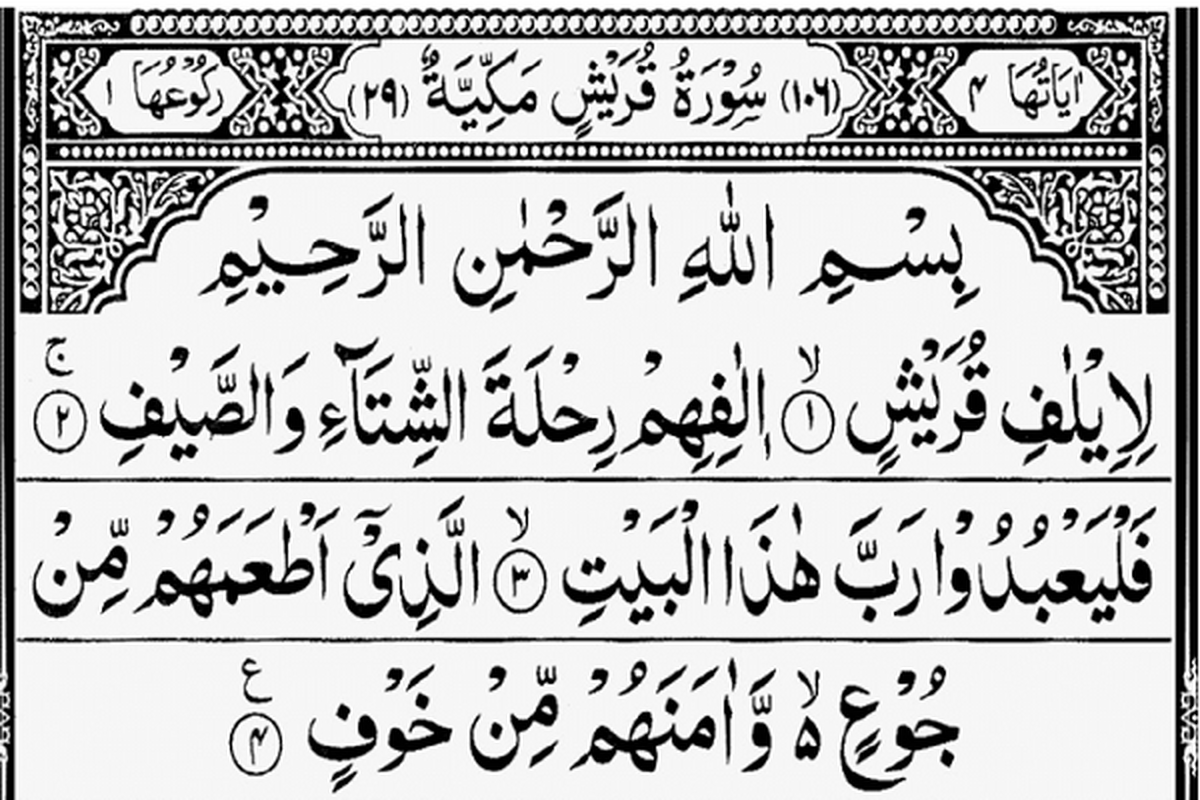 اٰيَاتُهَا ۴ (۱۰۶) سُوْرَةُ قُرَيْشٍ مَكِّيَّةٌ (۲۹) رَكُوْعُهَا ۱
بِسْمِ اللّٰهِ الرَّحْمٰنِ الرَّحِيْمِ
لِاِيْلٰفِ قُرَيْشٍ ۙ ﴿۱﴾ اٖلٰفِهِمْ رِحْلَةَ الشِّتَآءِ وَالصَّيْفِ ۚ ﴿۲﴾
فَلْيَعْبُدُوْا رَبَّ هٰذَا الْبَيْتِ ۙ ﴿۳﴾ الَّذِیْۤ اَطْعَمَهُمْ مِّنْ
جُوْعٍ ۙ۵ وَّاٰمَنَهُمْ مِّنْ خَوْفٍ ع ﴿۴﴾